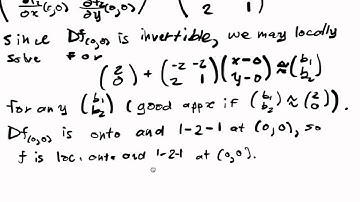 ∂x (0,0) ∂y (0,0) 2 1
since Df(0,0) is invertible, we may locally
solve for
(2 0) + (-2 -2 2 1)(x-0 y-0) ≈ (b₁ b₂)
for any (b₁ b₂) (good appx if (b₁ b₂) ≈ (2 0)).
Df(0,0) is onto and 1-2-1 at (0,0), so
f is loc. onto and 1-2-1 at (0,0).